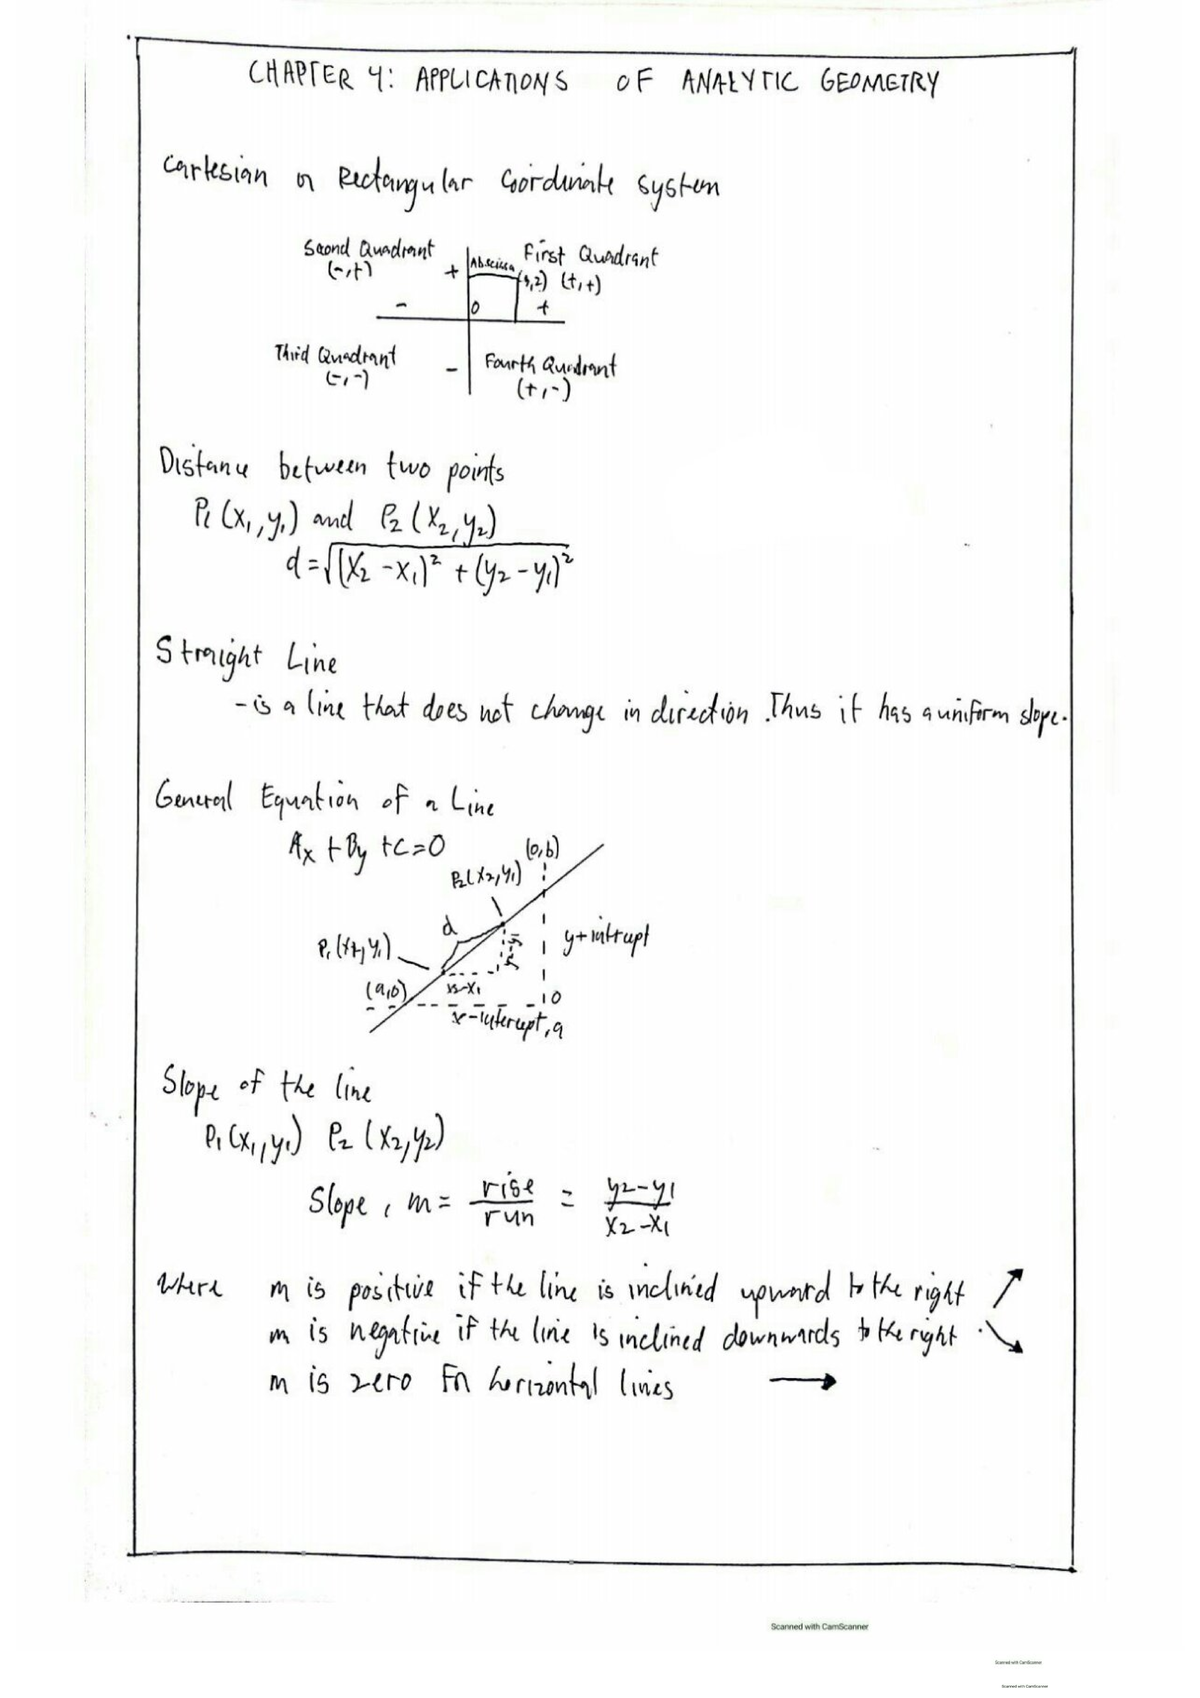 CHAPTER 4: APPLICATIONS OF ANALYTIC GEOMETRY
Cartesian or Rectangular Coordinate system
Second Quadrant
(-,+)
+
Abscissa
First Quadrant
(3,2) (+,+)
-
0
+
Third Quadrant
(-,-)
-
Fourth Quadrant
(+,-)
Distance between two points
P1 (x1, y1) and P2 (x2, y2)
d = √(x2 - x1)² + (y2 - y1)²
Straight Line
- is a line that does not change in direction. Thus it has a uniform slope.
General Equation of a Line
Ax + By + C = 0
(0,b)
P2(x2, y1)
d
P1(x2, y1)
y+intrupt
(a,0)
x2-x1
0
x-intercupt, a
Slope of the line
P1 (x1, y1) P2 (x2, y2)
Slope, m = rise/run = y2-y1/x2-x1
Where m is positive if the line is inclined upward to the right
m is negative if the line is inclined downwards to the right
m is zero for horizontal lines
Scanned with CamScanner
Scanned with CamScanner
Scanned with CamScanner